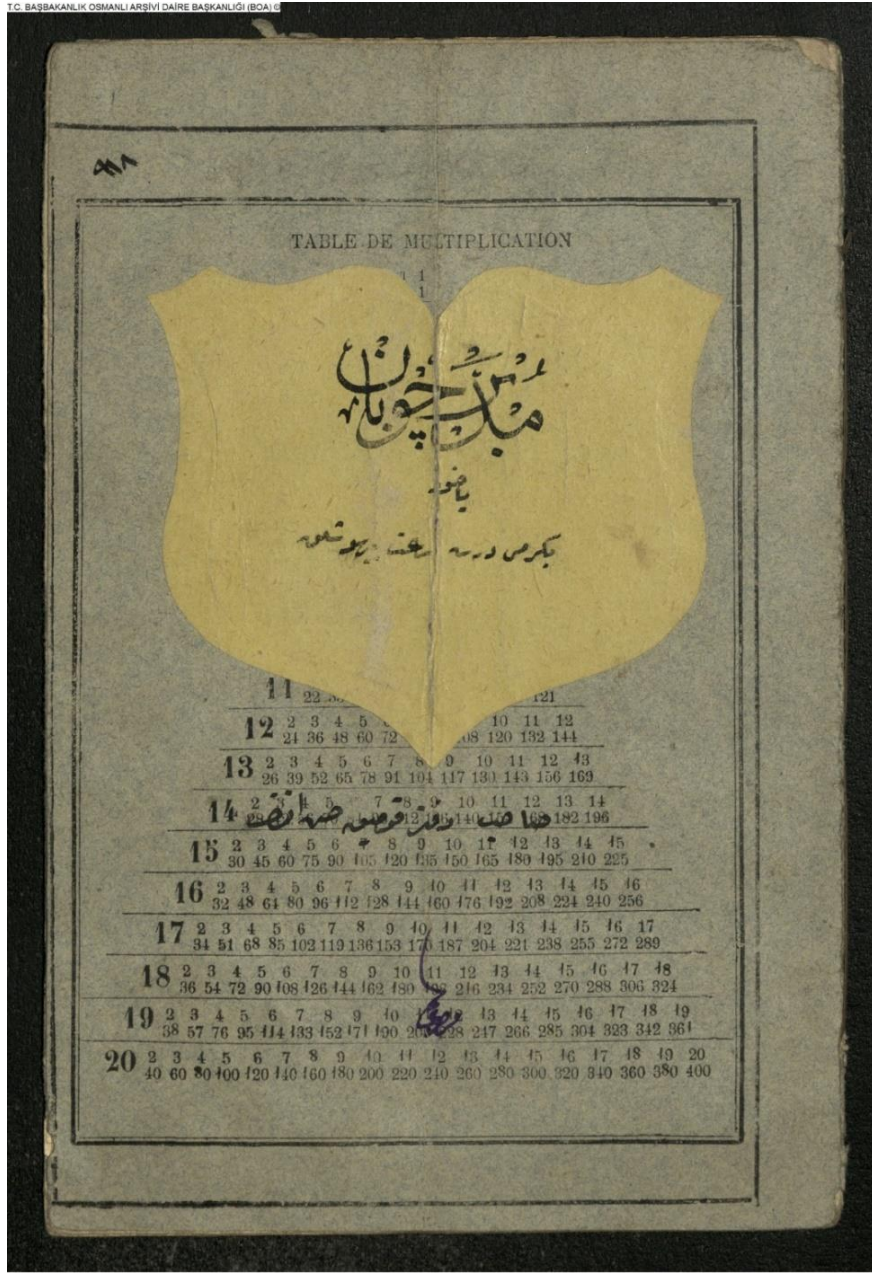 T.C. BAŞBAKANLIK OSMANLI ARŞİVİ DAİRE BAŞKANLIĞI (BOA) ©
TABLE DE MULTIPLICATION
1
1
چوبان
ياخود
يكرمى درت ساعت
11
22 121
12 2 3 4 5 10 11 12
24 36 48 60 72 08 120 132 144
13 2 3 4 5 6 7 8 9 10 11 12 13
26 39 52 65 78 91 104 117 130 143 156 169
14 2 3 4 5 7 8 9 10 11 12 13 14
182 196
صاحب دفتر افندى
15 2 3 4 5 6 7 8 9 10 11 12 13 14 15
30 45 60 75 90 105 120 135 150 165 180 195 210 225
16 2 3 4 5 6 7 8 9 10 11 12 13 14 15 16
32 48 64 80 96 112 128 144 160 176 192 208 224 240 256
17 2 3 4 5 6 7 8 9 10 11 12 13 14 15 16 17
34 51 68 85 102 119 136 153 170 187 204 221 238 255 272 289
18 2 3 4 5 6 7 8 9 10 11 12 13 14 15 16 17 18
36 54 72 90 108 126 144 162 180 198 216 234 252 270 288 306 324
19 2 3 4 5 6 7 8 9 10 12 13 14 15 16 17 18 19
38 57 76 95 114 133 152 171 190 209 228 247 266 285 304 323 342 361
20 2 3 4 5 6 7 8 9 10 11 12 13 14 15 16 17 18 19 20
40 60 80 100 120 140 160 180 200 220 240 260 280 300 320 340 360 380 400